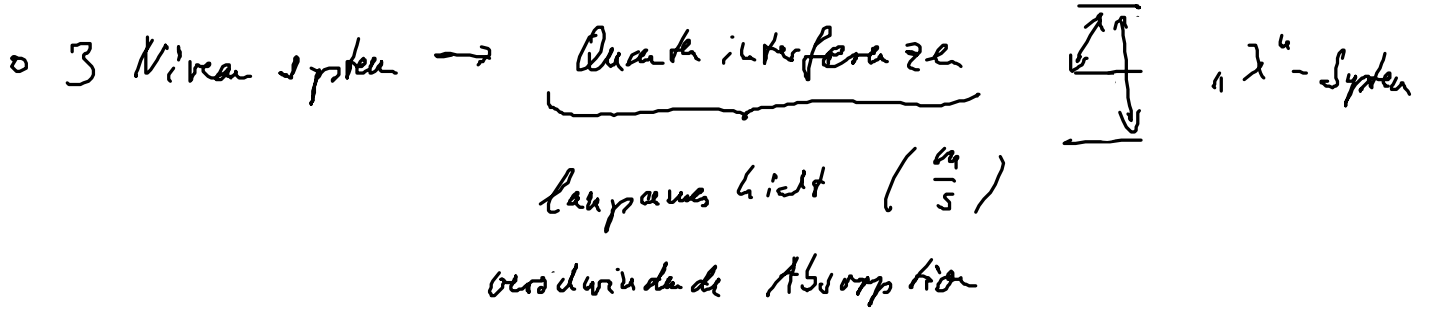 o 3 Niveau system → Quanten interferenzen „λ“-System
langsames Licht (m/s)
verschwindende Absorption